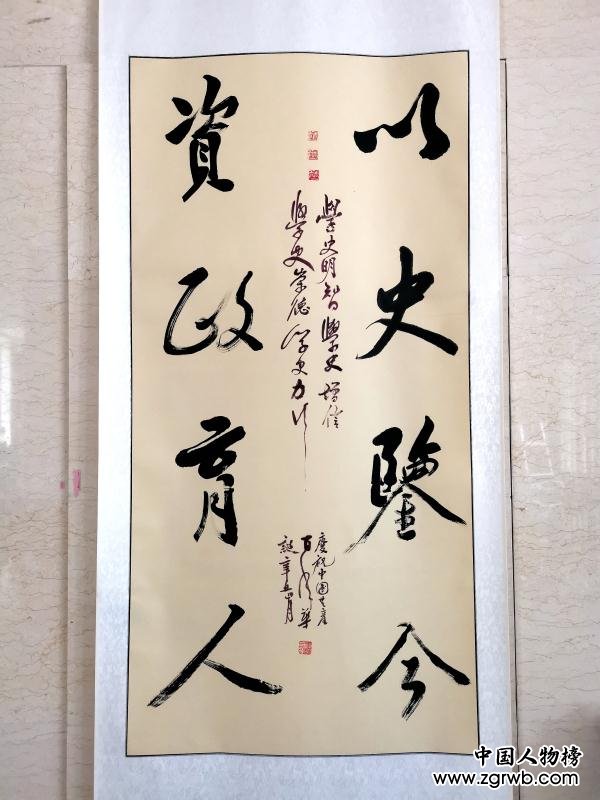 以史鑒今
資政育人
學史明智學史增信
學史崇德學史力行
慶祝中國共產
百年華
誕辛丑月
中国人物榜
www.zgrwb.com